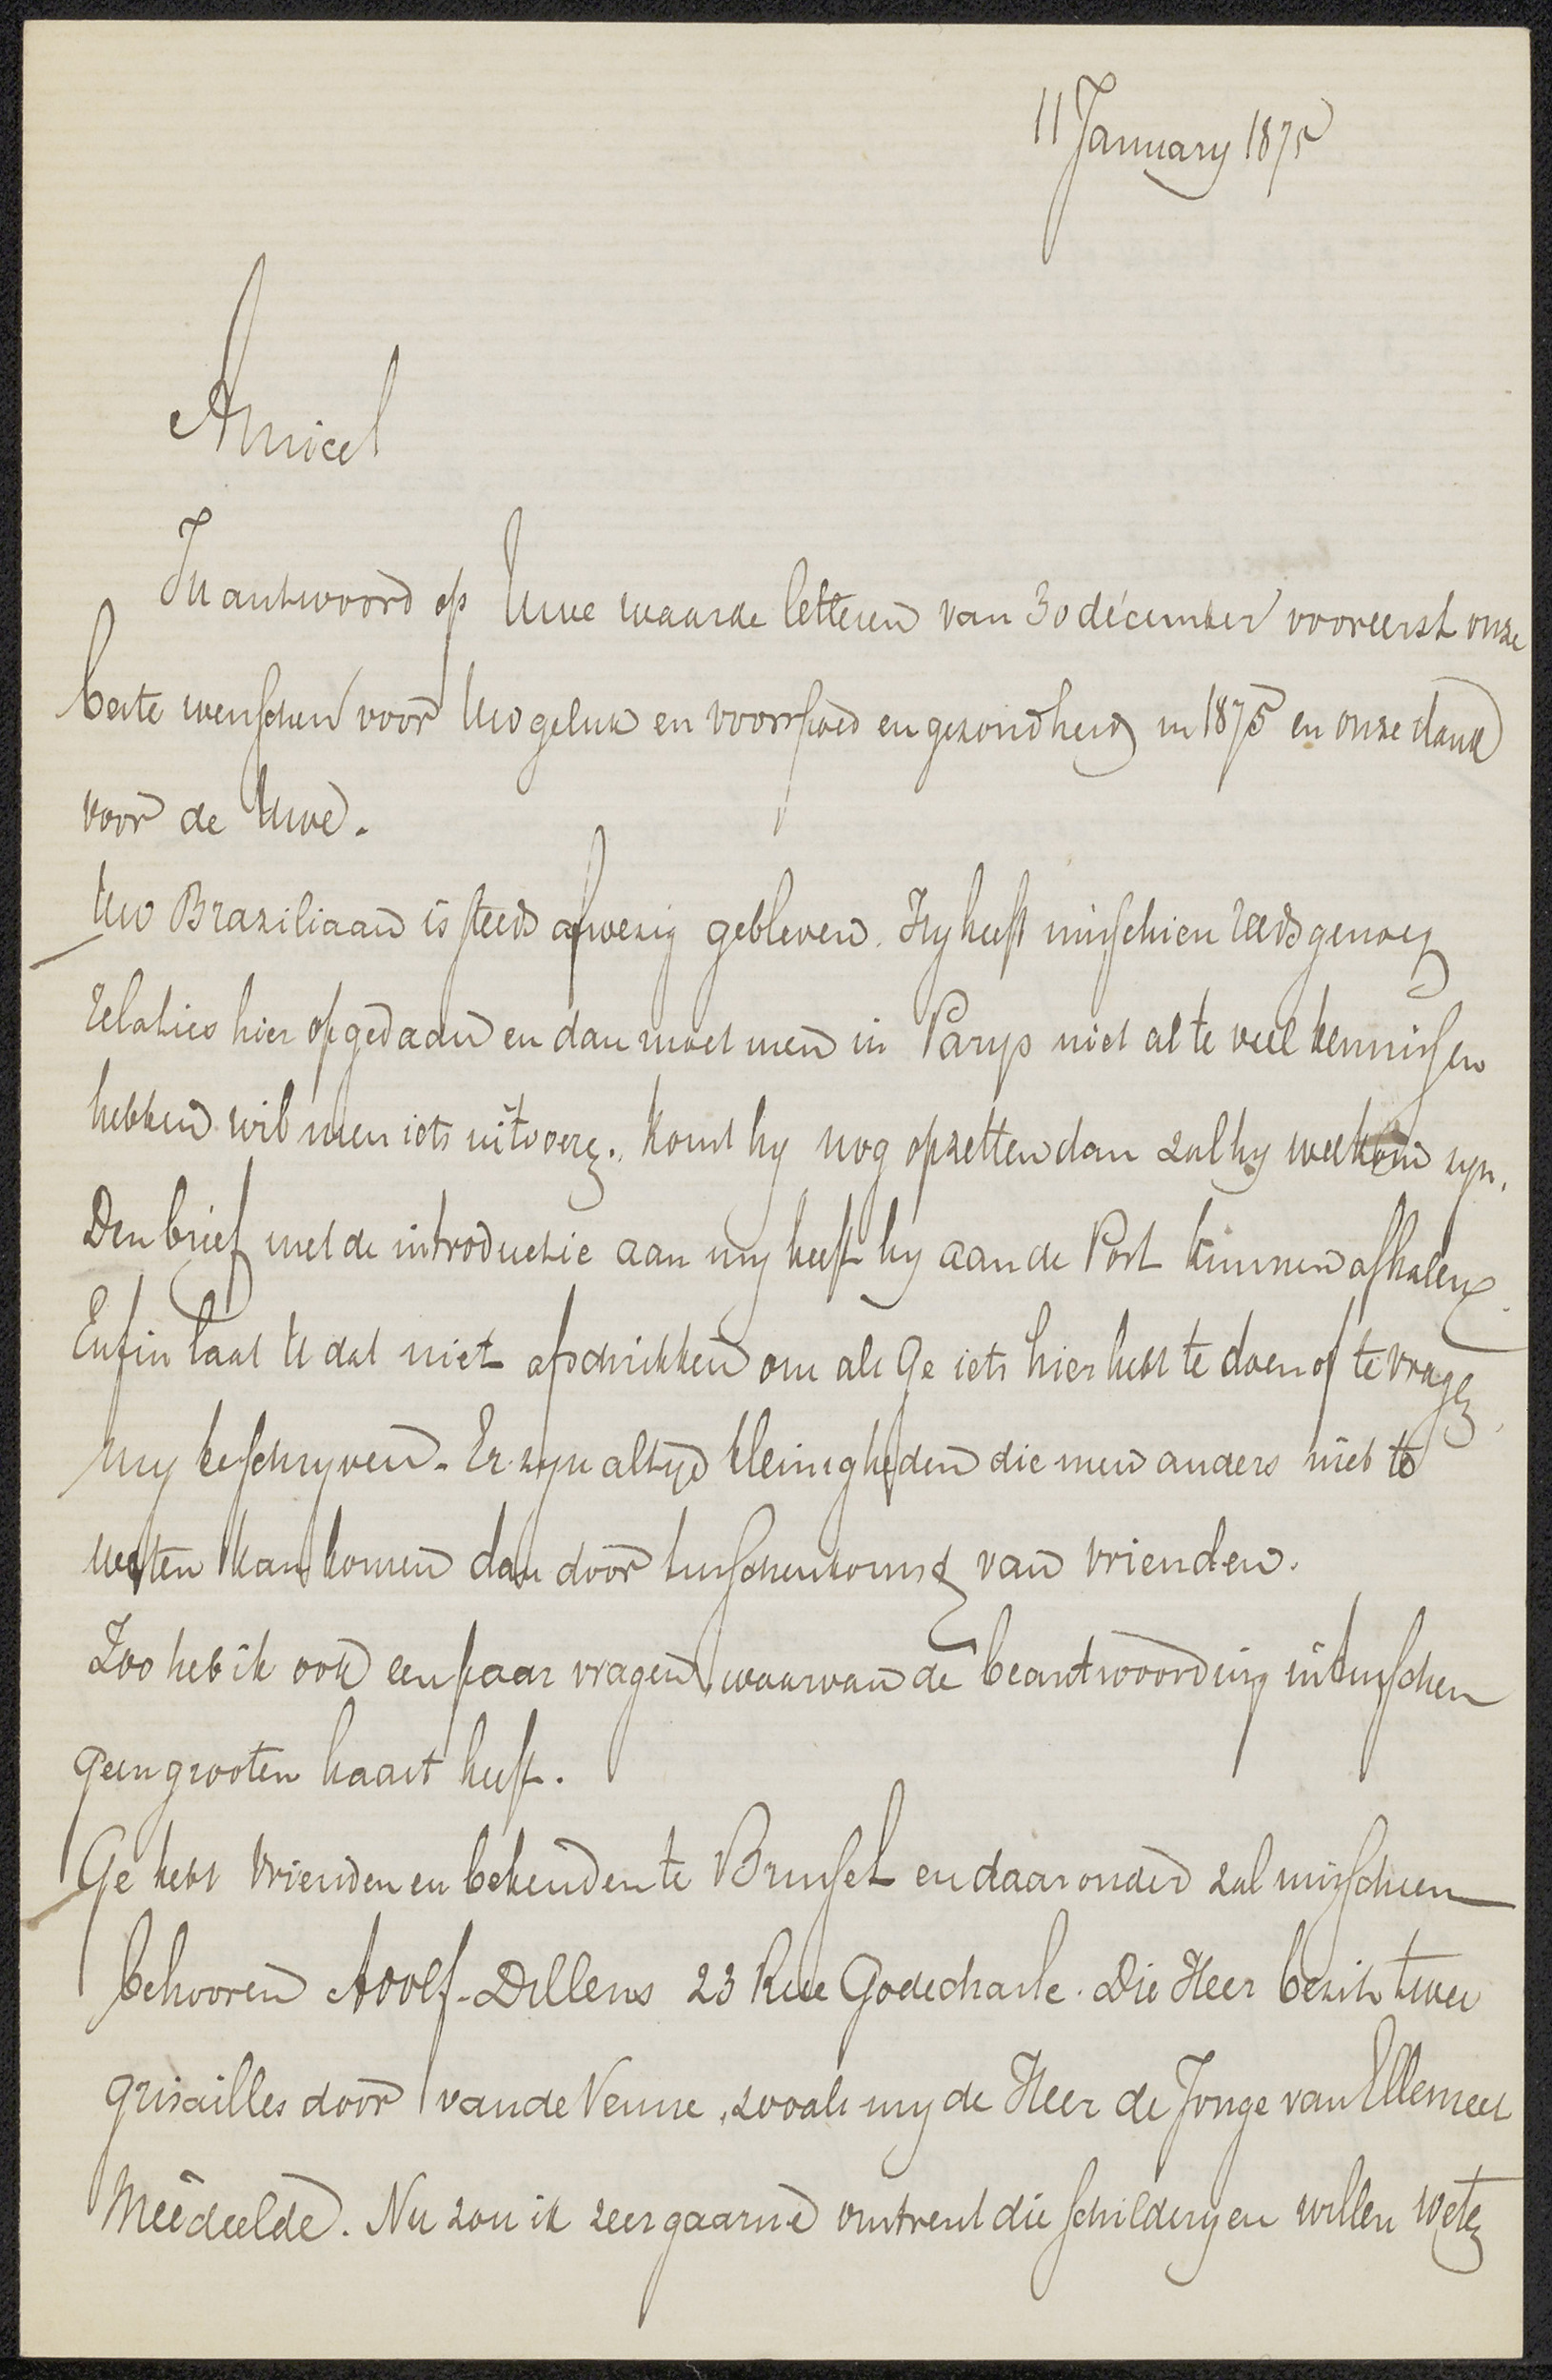 11 January 1875
Amice!
In antwoord op Uwe waarde letteren van 30 décember vooreerst onze
beste wenschen voor Uw geluk en voorspoed en gezondheid in 1875 en onze dank
voor de Uwe.
Uw Braziliaan is steeds afwezig gebleven. Hy heeft misschien reeds genoeg
relaties hier opgedaan en dan moet men in Parys niet al te veel kennissen
hebben wil men iets uitvoeren. Komt hy nog opzetten dan zal hy welkom zyn.
Den brief met de introductie aan my heeft hy aan de Post kunnen afhalen.
Enfin laat U dat niet afschrikken om als Ge iets hier hebt te doen of te vragen
my te schryven. Er zyn altyd kleinigheden die men anders niet te
weten kan komen dan door tusschenkomst van vrienden.
Zoo heb ik ook een paar vragen, waarvan de beantwoording intusschen
geen grooten haast heeft.
Ge hebt vrienden en bekenden te Brussel en daaronder zal misschien
behooren Adolf Dillens 23 Rue Godecharle. Die Heer bezit twee
grisailles door van de Venne, zooals my de Heer de Jonge van Ellemeet
meêdeelde. Nu zou ik zeer gaarne omtrent die schilderyen willen weten